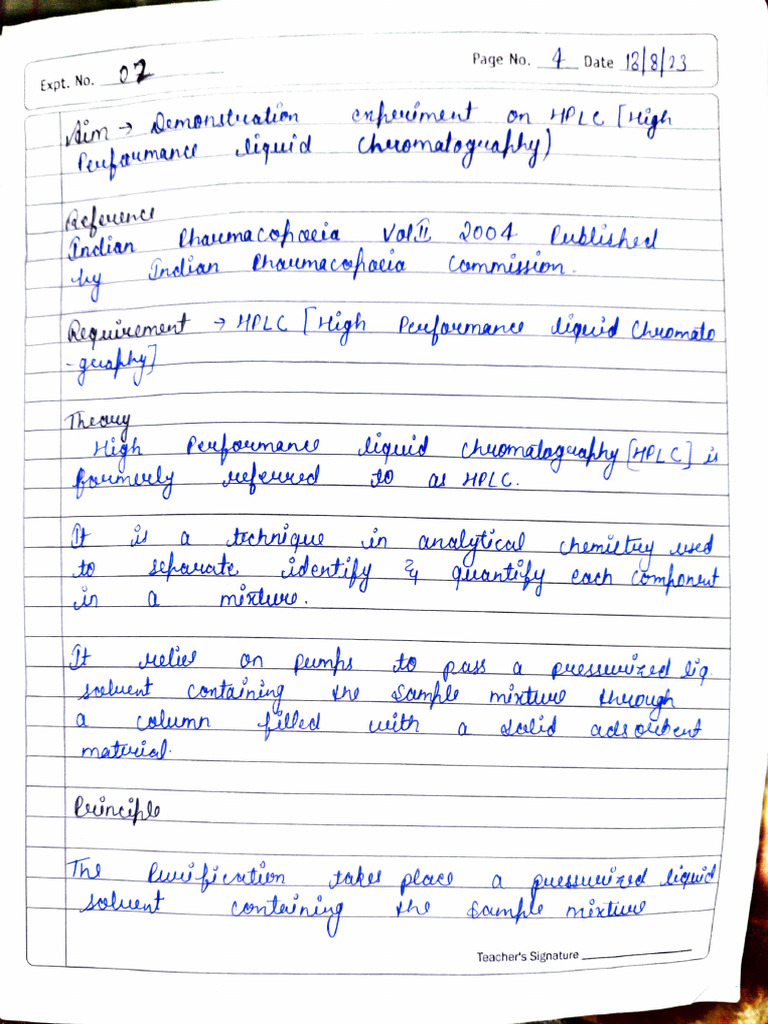 Expt. No. 02
Page No. 4 Date 18/8/23
Aim → Demonstration experiment on HPLC [High
Performance liquid Chromatography)
Reference
Indian Pharmacopoeia Vol II 2004 Published
by Indian Pharmacopoeia Commission.
Requirement → HPLC [High Performance liquid Chromato
-graphy]
Theory
High Performance liquid chromatography [HPLC] is
formerly referred to as HPLC.
It is a technique in analytical chemistry used
to separate identify & quantify each component
in a mixture.
It relies on pumps to pass a pressurized liq.
solvent containing the sample mixture through
a column filled with a solid adsorbent
material.
Principle
The Purification takes place a pressurized liquid
solvent containing the sample mixture
Teacher's Signature